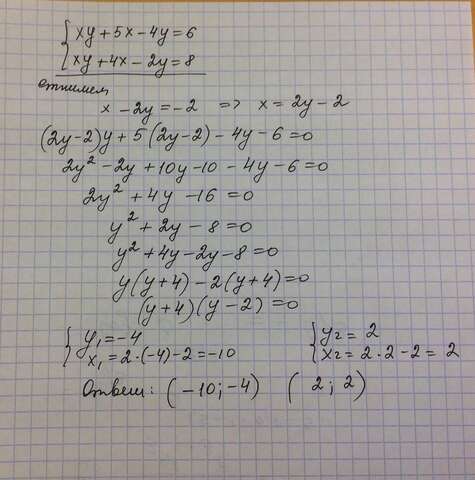 {xy + 5x - 4y = 6
{xy + 4x - 2y = 8
отнимем
x - 2y = -2 => x = 2y - 2
(2y-2)y + 5(2y-2) - 4y - 6 = 0
2y² - 2y + 10y - 10 - 4y - 6 = 0
2y² + 4y - 16 = 0
y² + 2y - 8 = 0
y² + 4y - 2y - 8 = 0
y(y+4) - 2(y+4) = 0
(y+4)(y-2) = 0
{y₁ = -4 {y₂ = 2
x₁ = 2·(-4) - 2 = -10 x₂ = 2·2 - 2 = 2
Ответ: (-10; -4) (2; 2)